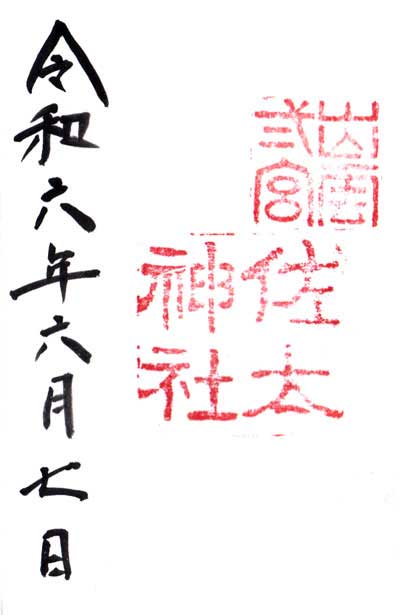 出雲
弐宮
佐太
神社
令和六年六月七日